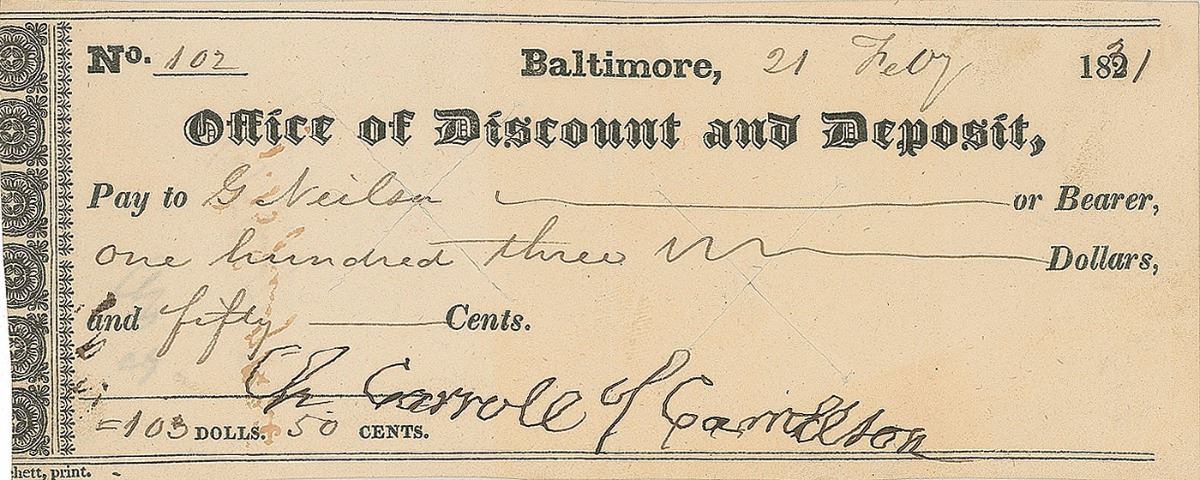 No. 102 Baltimore, 21 Feby 1831
Office of Discount and Deposit,
Pay to G Neilson or Bearer,
one hundred three Dollars,
and fifty Cents.
Ch Carroll of Carrollton
=103 DOLLS. 50 CENTS.
chett, print.